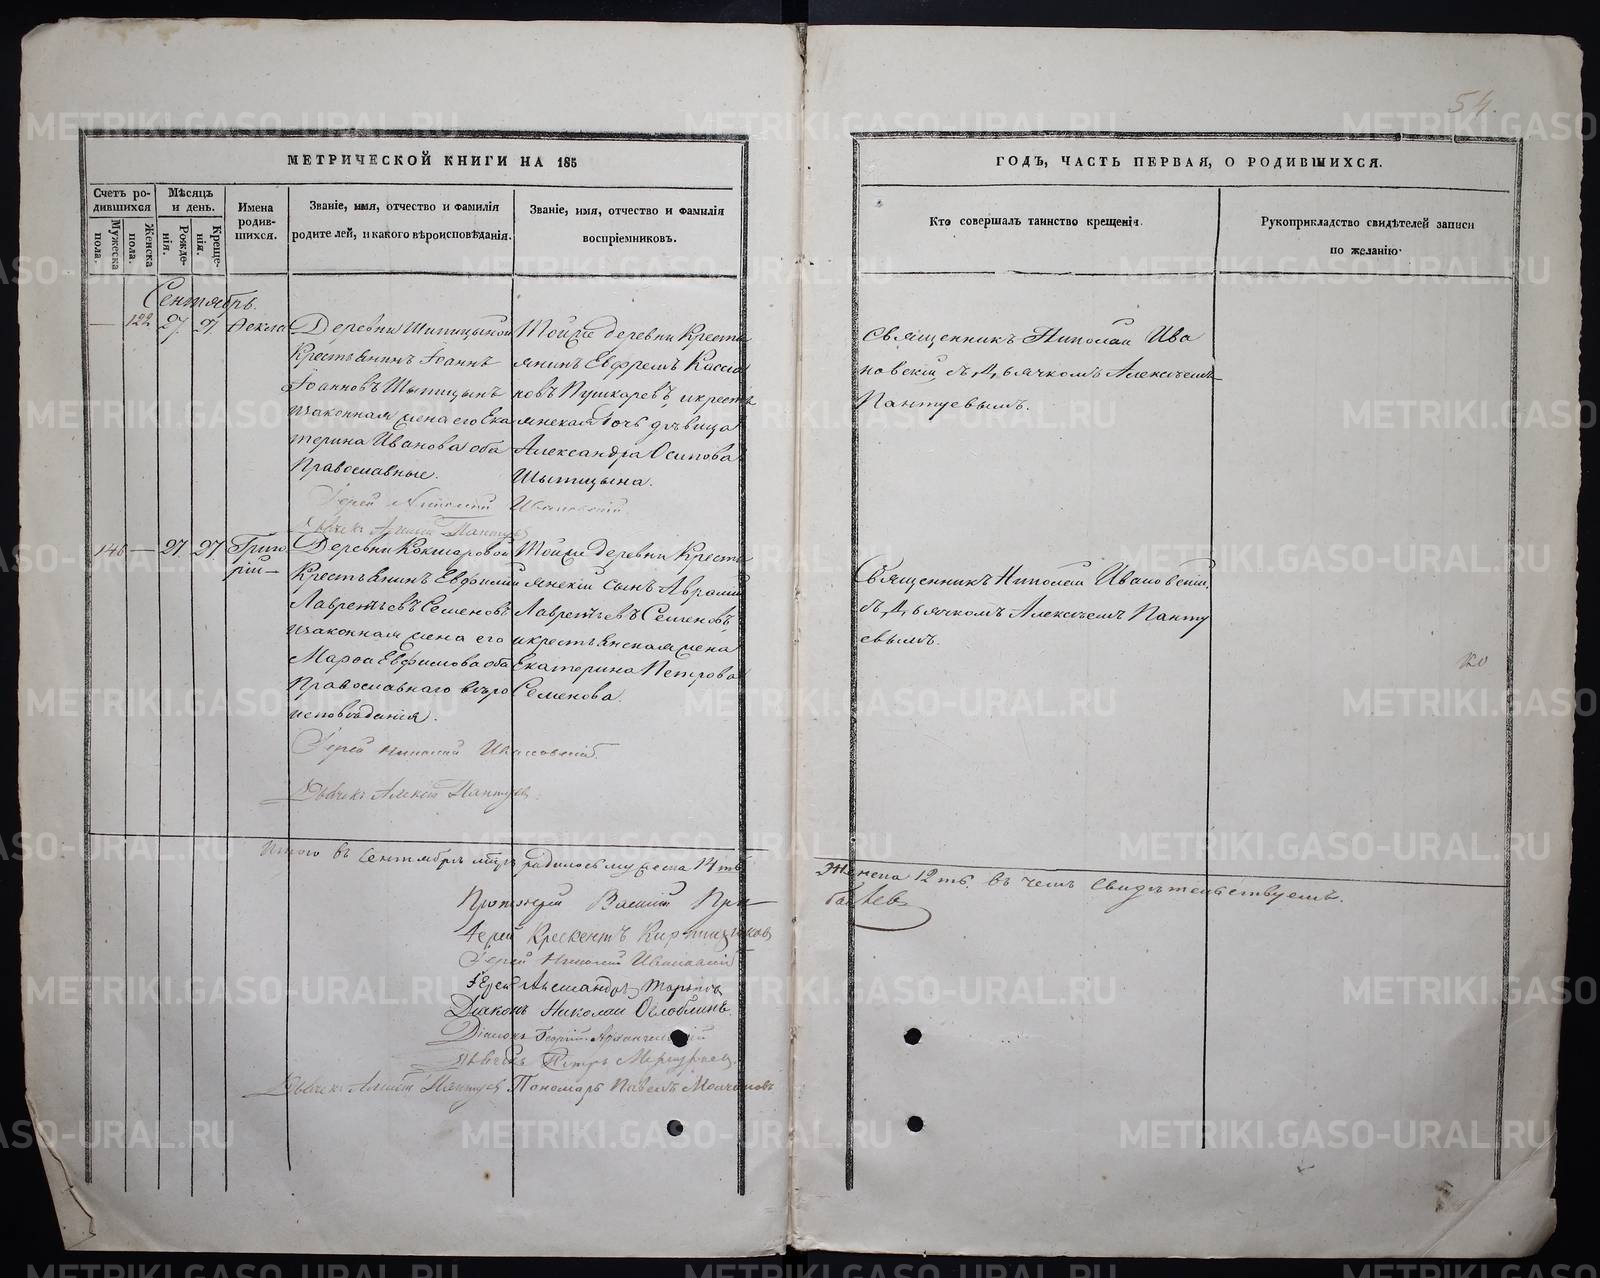 54.
МЕТРИЧЕСКОЙ КНИГИ НА 185
ГОДЪ, ЧАСТЬ ПЕРВАЯ, О РОДИВШИХСЯ.
Счетъ ро-
дившихся
Мужеска пола.
Женска пола.
Мѣсяцъ
и день.
Рожде-
нія.
Креще-
нія.
Имена
родив-
шихся.
Званіе, имя, отчество и фамилія
родителей, и какого вѣроисповѣданія.
Званіе, имя, отчество и фамилія
воспріемниковъ.
Кто совершалъ таинство крещенія.
Рукоприкладство свидѣтелей записи
по желанію.
Сентябрь.
— 122 27. 27 Фекла
Деревни Шипицыной
Крестьянинъ Іоаннъ
Іоанновъ Шыпицынъ
и законная жена его Ека
терина Иванова оба
Православные.
Тойже деревни Крестъ
янинъ Евфремъ Кассiа
новъ Пушкаревъ, и крестъ
янская дочь дѣвица
Александра Осипова
Шыпицына.
Священникъ Николай Ива
новскій съ Дьячкомъ Алексѣемъ
Пантуевымъ.
Іерей Николай Ивановскій.
Дьячекъ Алексѣй Пантуев
146 — 27. 27 Григо
рій —
Деревни Кокшаровой
Крестьянинъ Евфимій
Лаврентьевъ Семеновъ
и законная жена его
Марфа Евфимова оба
Православнаго вѣро
исповѣданія.
Тойже деревни Крестъ
янскій сынъ Аврамій
Лаврентьевъ Семеновъ,
и крестьянская жена
Екатерина Петрова
Семенова.
Священникъ Николай Ивановскій,
съ Дьячкомъ Алексѣемъ Панту
евымъ.
Іерей Николай Ивановскій.
Дьячекъ Алексѣй Пантуев
Итого въ Сентябрѣ мцѣ родилось мужеска 14ть
Женска 12ть. въ чемъ Свидѣтельствуемъ.
Протоіерей Василій
Іерей Крескентъ Кирпищиковъ
Іерей Николай Ивановскій
Іерей Александръ
Діаконъ Николай Оглоблинъ.
Діаконъ Георгій Архангельскій
Дьячекъ Петръ
Дьячекъ Алексѣй Пантуевъ Пономарь Павелъ Молчановъ
METRIKI.GASO-URAL.RU